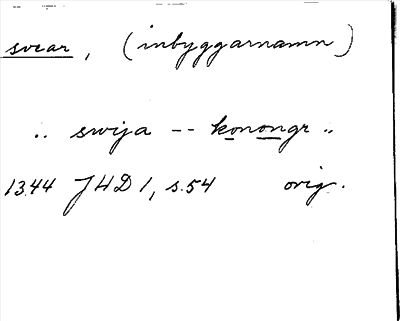 svear, (inbyggarnamn)
.. swija -- konongr ..
1344 JHD 1, s.54 orig.